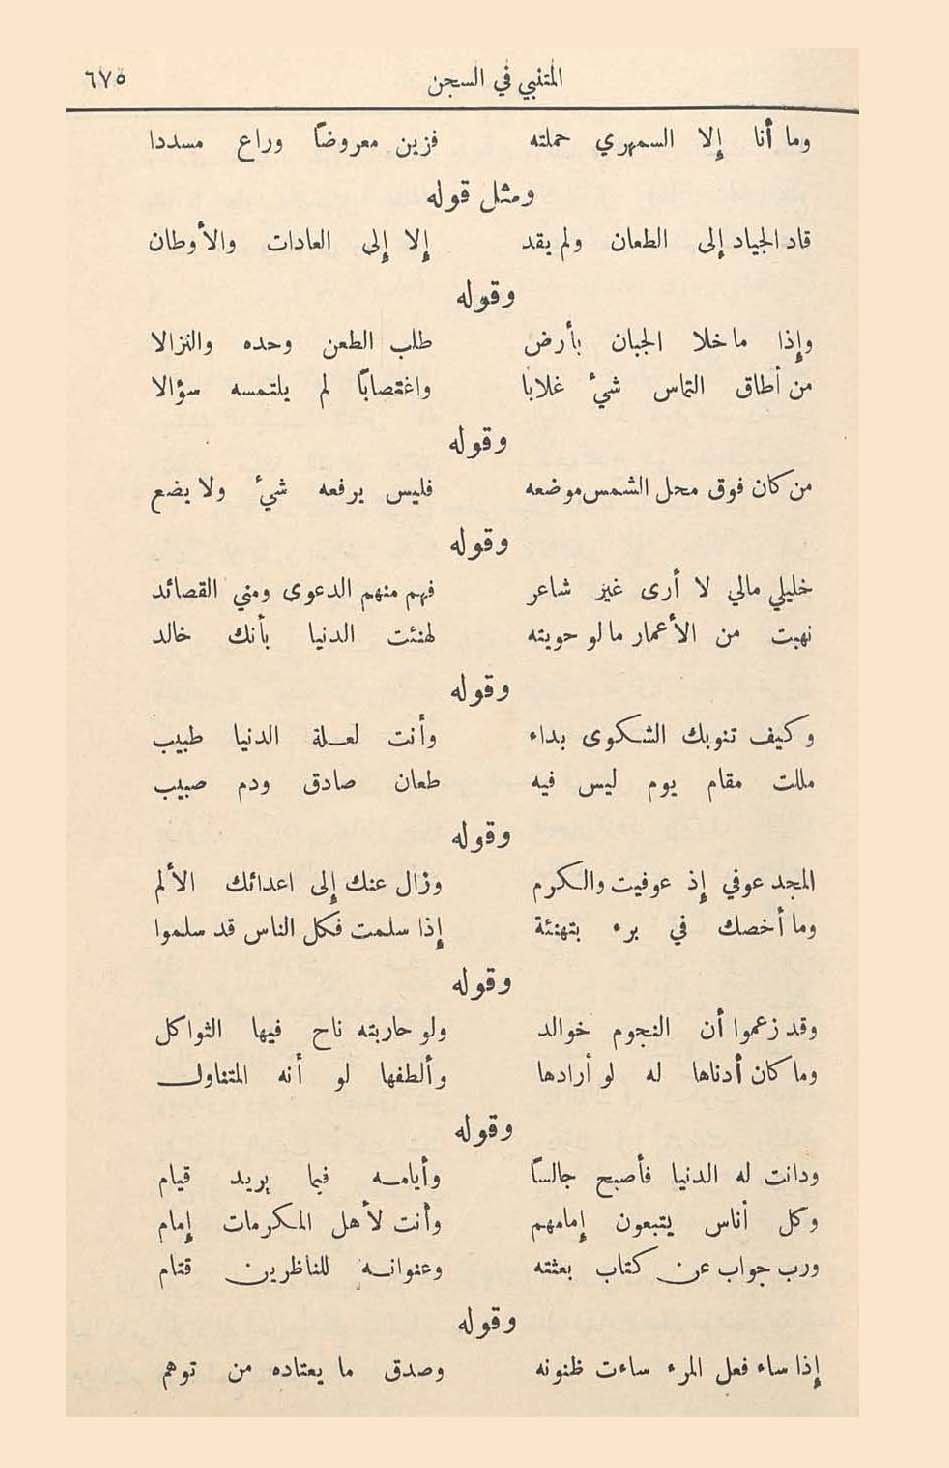 المتنبي في السجن ٦٧٥
وما أنا إلا السمهري حملته فزين معروضاً وراع مسددا
ومثل قوله
قاد الجياد إلى الطعان ولم يقد إلا إلى العادات والأوطان
وقوله
وإذا ما خلا الجبان بأرض طلب الطعن وحده والنزالا
من أطاق التماس شيء غلابا واغتصاباً لم يلتمسه سؤالا
وقوله
من كان فوق محل الشمس موضعه فليس يرفعه شيء ولا يضع
وقوله
خليلي مالي لا أرى غير شاعر فهم منهم الدعوى ومني القصائد
نهبت من الأعمار ما لو حويته لهنئت الدنيا بأنك خالد
وقوله
وكيف تنوبك الشكوى بداء وأنت لعلة الدنيا طبيب
مللت مقام يوم ليس فيه طعان صادق ودم صبيب
وقوله
المجد عوفي إذ عوفيت والكرم وزال عنك إلى اعدائك الألم
وما أخصك في برء بتهنئة إذا سلمت فكل الناس قد سلموا
وقوله
وقد زعموا أن النجوم خوالد ولو حاربته ناح فيها الثواكل
وما كان أدناها له لو أرادها وألطفها لو أنه المتناول
وقوله
ودانت له الدنيا فأصبح جالساً وأيامه فيما يريد قيام
وكل أناس يتبعون إمامهم وأنت لأهل المكرمات إمام
ورب جواب عن كتاب بعثته وعنوانه للناظرين قتام
وقوله
إذا ساء فعل المرء ساءت ظنونه وصدق ما يعتاده من توهم